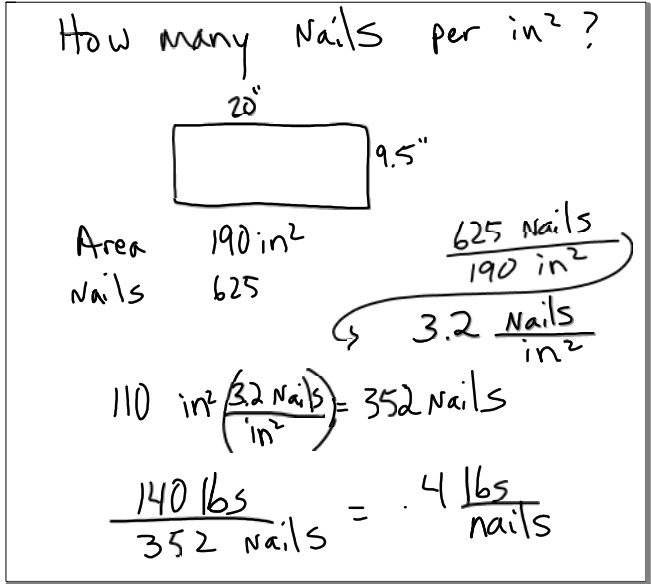 How many Nails per in² ?
20"
9.5"
Area 190 in²
Nails 625
625 Nails / 190 in²
3.2 Nails / in²
110 in² (3.2 Nails / in²) = 352 Nails
140 lbs / 352 Nails = .4 lbs / nails